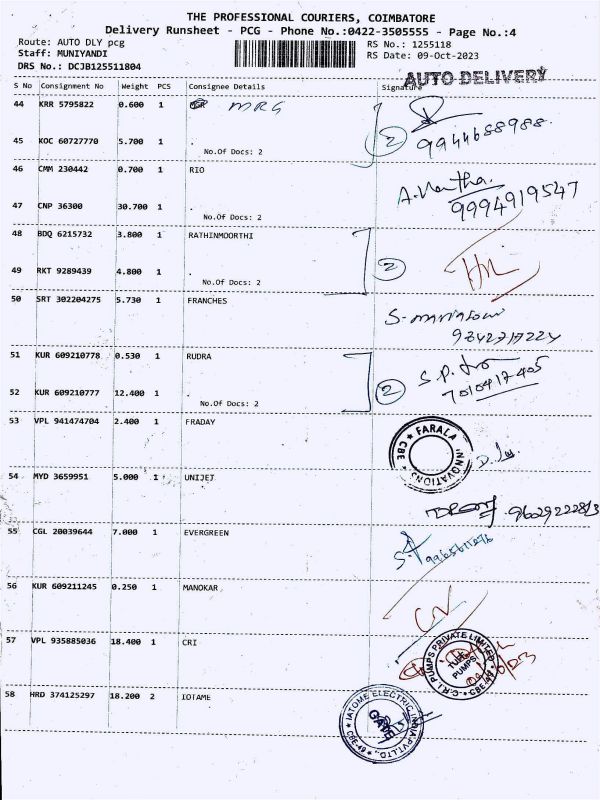 THE PROFESSIONAL COURIERS, COIMBATORE
Delivery Runsheet - PCG - Phone No.:0422-3505555 - Page No.:4
Route: AUTO DLY pcg
RS No.: 1255118
Staff: MUNIYANDI
RS Date: 09-Oct-2023
DRS No.: DCJB125511804
AUTO DELIVERY
S No Consignment No Weight PCS Consignee Details Signature
44 KRR 5795822 0.600 1 MRG
2 9944688988
45 KOC 60727770 5.700 1 .
No.Of Docs: 2
46 CMM 230442 0.700 1 RIO
9994919547
47 CNP 36300 30.700 1 .
No.Of Docs: 2
48 BDQ 6215732 3.800 1 RATHINMOORTHI
2
49 RKT 9289439 4.800 1 .
No.Of Docs: 2
50 SRT 302204275 5.730 1 FRANCHES
51 KUR 609210778 0.530 1 RUDRA
2 7010417405
52 KUR 609210777 12.400 1 .
No.Of Docs: 2
53 VPL 941474704 2.400 1 FRADAY
FARALA INNOVATIONS CBE
54 MYD 3659951 5.000 1 UNIJET
55 CGL 20039644 7.000 1 EVERGREEN
56 KUR 609211245 0.250 1 MANOKAR
57 VPL 935885036 18.400 1 CRI
C.R.I. PUMPS PRIVATE LIMITED CBE-49
PUMPS
58 HRD 374125297 18.200 2 IOTAME
IATOME ELECTRIC INDIA PVT.LTD., CBE-49
GATE